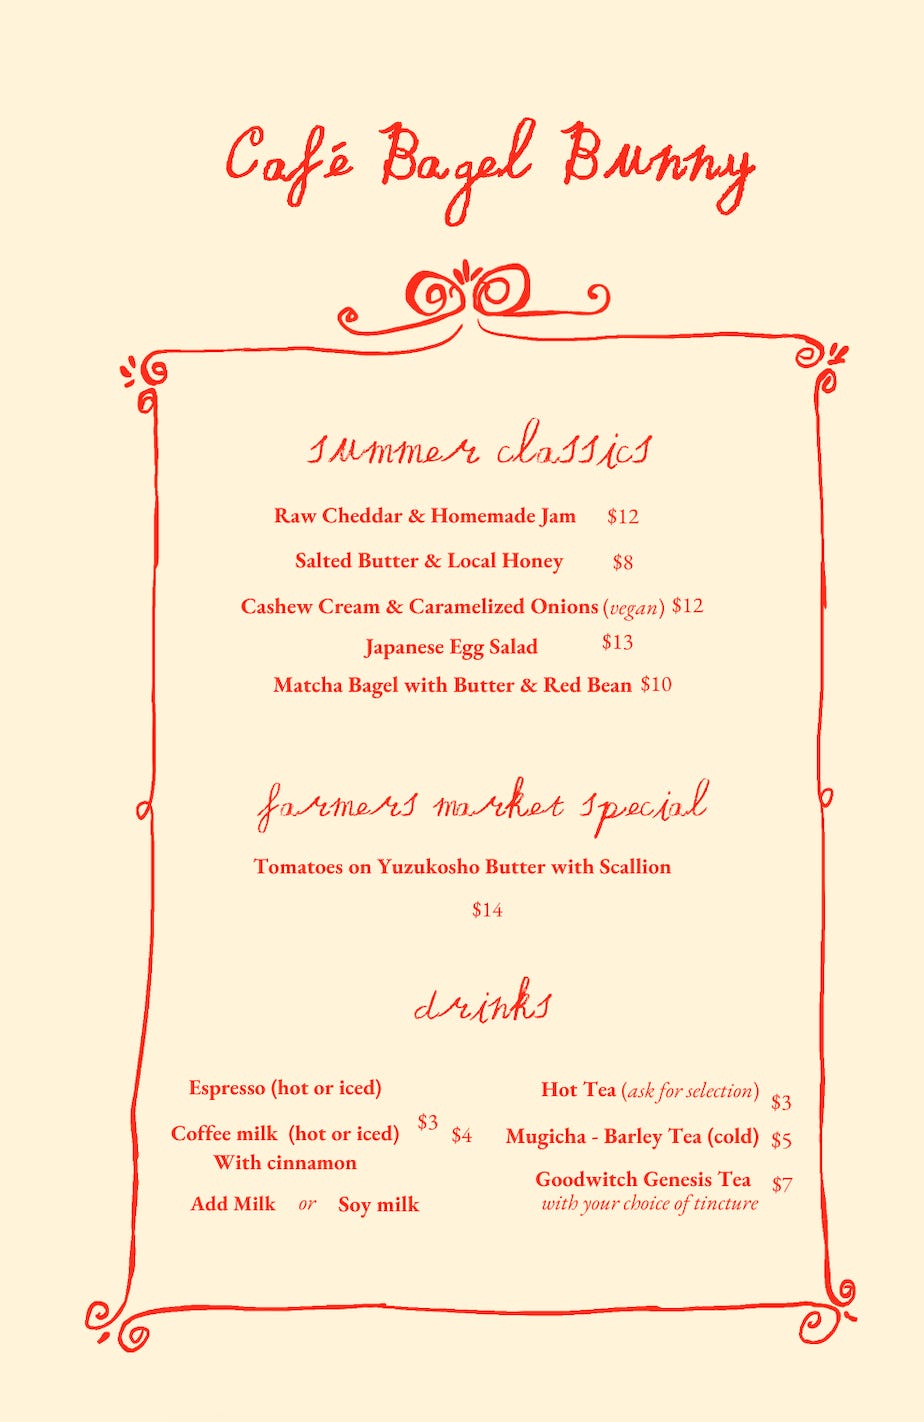 Café Bagel Bunny
summer classics
Raw Cheddar & Homemade Jam $12
Salted Butter & Local Honey $8
Cashew Cream & Caramelized Onions (vegan) $12
Japanese Egg Salad $13
Matcha Bagel with Butter & Red Bean $10
farmers market special
Tomatoes on Yuzukosho Butter with Scallion
$14
drinks
Espresso (hot or iced)
$3
Coffee milk (hot or iced) $4
With cinnamon
Add Milk or Soy milk
Hot Tea (ask for selection) $3
Mugicha - Barley Tea (cold) $5
Goodwitch Genesis Tea $7
with your choice of tincture